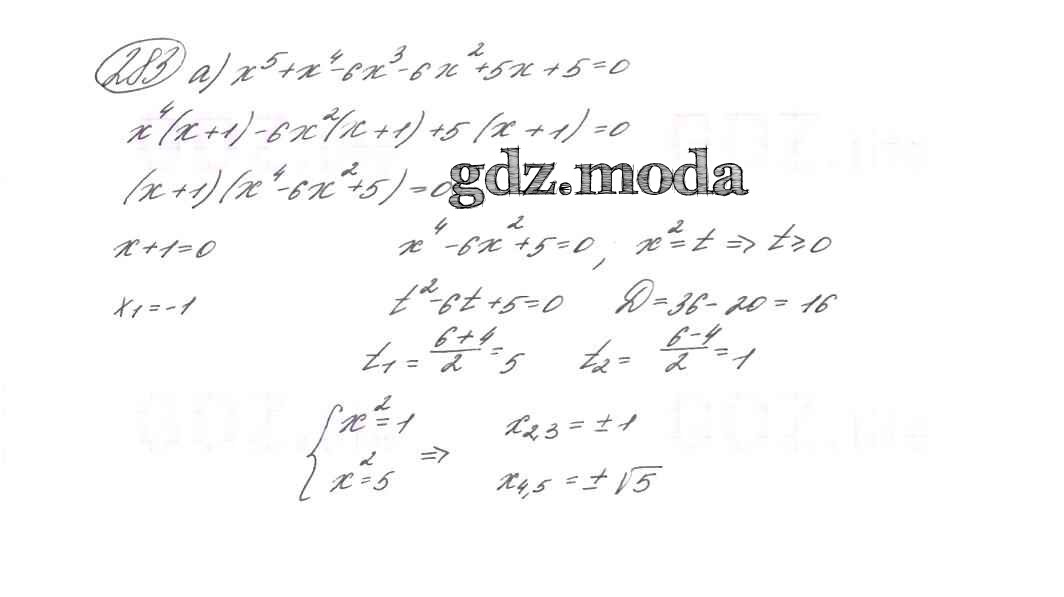 283 а) x⁵+x⁴-6x³-6x²+5x+5=0
x⁴(x+1)-6x²(x+1)+5(x+1)=0
(x+1)(x⁴-6x²+5)=0
gdz.moda
x+1=0 x⁴-6x²+5=0, x²=t => t≥0
x₁=-1 t²-6t+5=0 D=36-20=16
t₁=(6+4)/2=5 t₂=(6-4)/2=1
{x²=1 x₂,₃=±1
x²=5 => x₄,₅=±√5